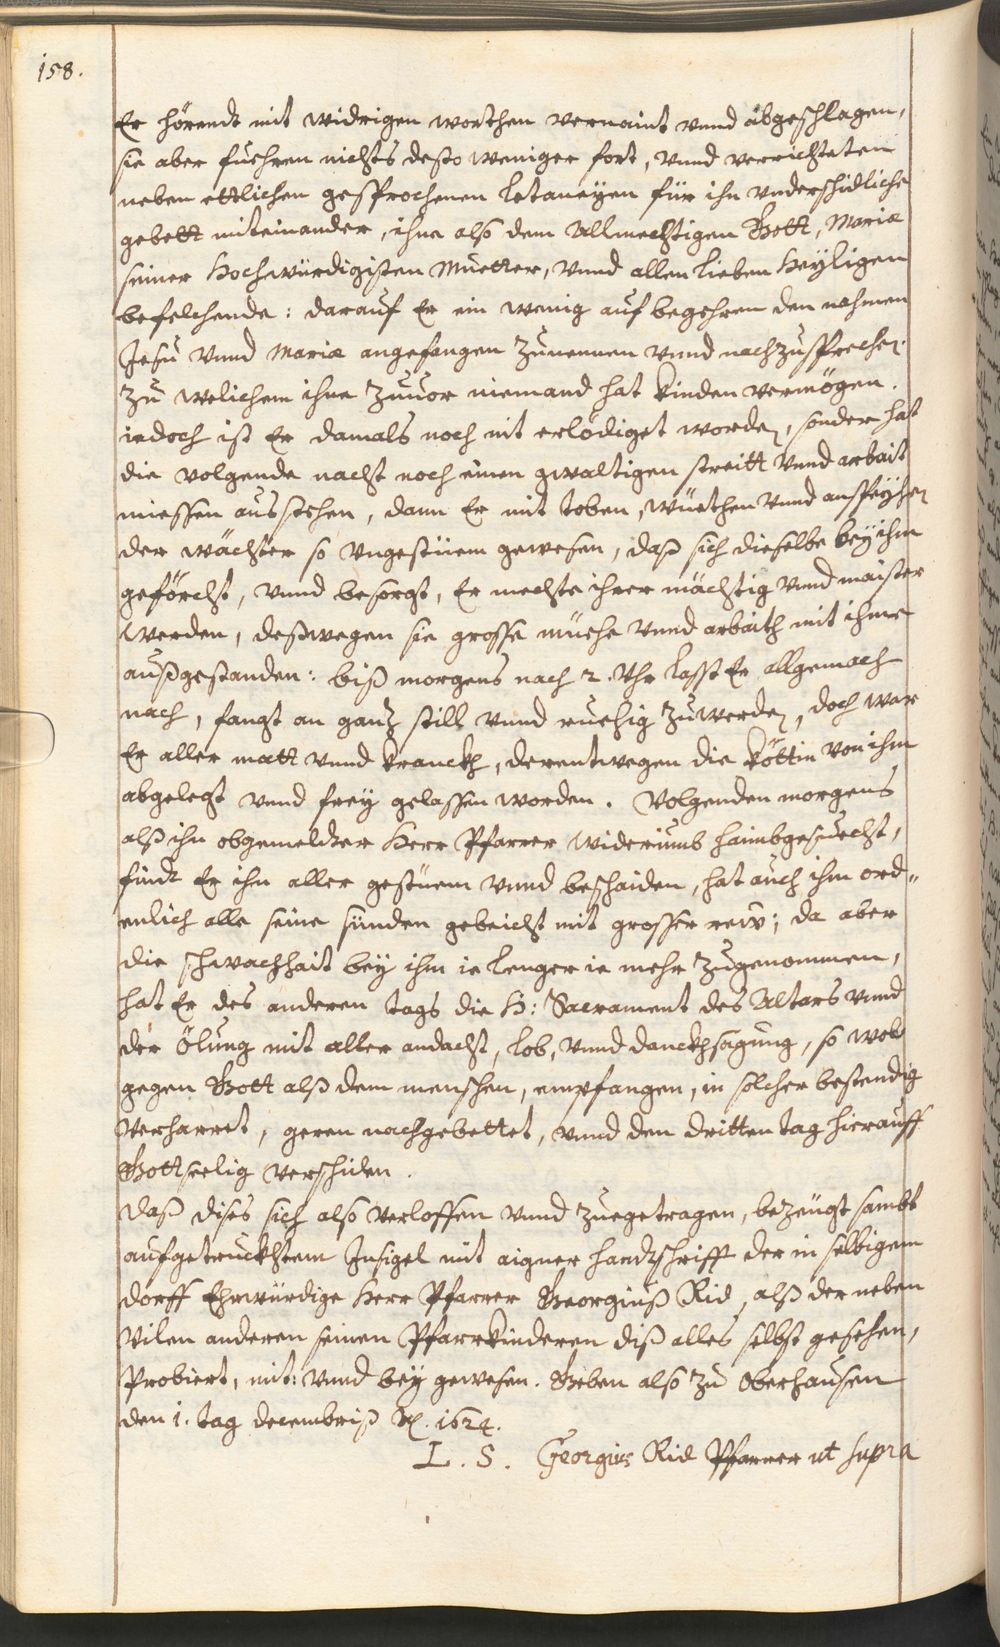 158.
Er hörendt mit widrigen worthen vernaint vnnd abgeschlagen,
sie aber fuehren nichts desto weniger fort, vnnd verrichteten
neben ettlichen gesprochenen Letaneyen für ihn vnderschidliche
gebett miteinander, ihne also dem Allmechtigen Gott, Mariæ
seiner Hochwürdigisten Muetter, vnnd allen lieben Heyligen
befelchende: darauf Er ein wenig auf begehren den nahmen
Jesu vnnd Mariæ angefangen Zunennen vnnd nachzusprechen.
Zu welichem ihne Zuuor niemand hat kinden vermögen.
iedoch ist Er damals noch nit erlödiget worden, sonder hat
die volgende nacht noch einen gwaltigen streitt vnnd arbait
miessen ausstehen, dann Er mit toben, wüethen vnnd anspeyhen
der wächter so vngestüem gewesen, daß sich dieselbe bey ihm
geförcht, vnnd besorgt, Er mechte ihrer mächtig vnnd maister
werden, deßwegen sie grosse müehe vnnd arbaith mit ihme
außgestanden: biß morgens nach 2. Vhr lasst Er allgemach
nach, fangt an ganz still vnnd ruehig Zuwerden, doch war
Er aller matt vnnd kranckh, derentwegen die köttin von ihm
abgelegt vnnd frey gelassen worden. Volgenden morgens
alß ihn obgemelter Herr Pfarrer wideriumb haimbgesuecht,
findt Er ihn aller gestüem vnnd beschaiden, hat auch ihm ord„
enlich alle seine sünden gebeicht mit grosser rew; da aber
die schwachhait bey ihm ie lenger ie mehr Zugenommen,
hat Er des anderen tags die H: Sacrament des Altars vnnd
der Ölung mit aller andacht, lob, vnnd danckhsagung, so wol
gegen Gott alß dem menschen, empfangen, in solcher bestendig
verharret, geren nachgebettet, vnnd den dritten tag hierauff
Gottseelig verschiden.
Daß dises sich also verloffen vnnd Zuegetragen, bezeugt sambt
aufgetruckhtem Insigel mit aigner handtschrifft der in selbigem
dorff Ehrwürdige Herr Pfarrer Georgiuß Rid, alß der neben
vilen anderen seinen Pfarrkinderen diß alles selbst gesehen,
Probiert, mit: vnnd bey gewesen. Geben also Zu Oberhausen
den 1. tag decembriß 1624.
L. S. Georgius Rid Pfarrer ut supra